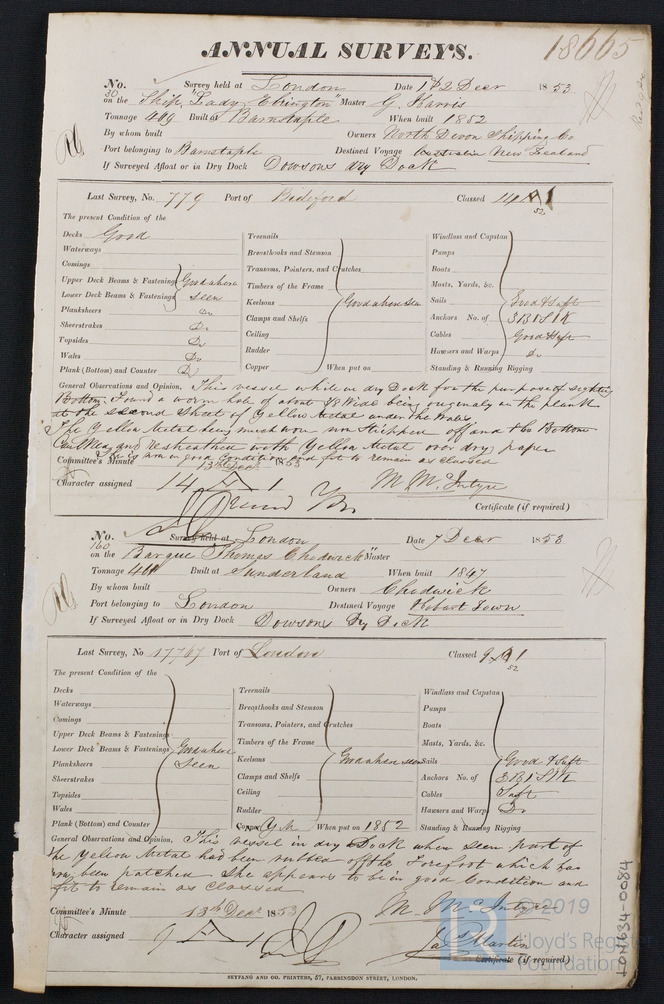 18665
ANNUAL SURVEYS.
No. 30 Survey held at London Date 1 & 2 Decr 1853
on the Ship "Lady Ebrington" Master G. Harris
Tonnage 409 Built at Barnstaple When built 1852
By whom built Owners North Devon Shipping Co
Port belonging to Barnstaple Destined Voyage Australia New Zealand
If Surveyed Afloat or in Dry Dock Dowsons dry Dock
Last Survey, No. 779 Port of Bideford Classed 14 A 1
52
The present Condition of the
Decks Good
Waterways
Comings
Upper Deck Beams & Fastening Good where
Lower Deck Beams & Fastenings seen
Planksheers Do
Sheerstrakes Do
Topsides Do
Wales Do
Plank (Bottom) and Counter Do
Treenails
Breasthooks and Stemson
Transoms, Pointers, and Crutches
Timbers of the Frame
Keelsons Good where seen
Clamps and Shelfs
Ceiling
Rudder
Copper When put on
Windlass and Capstan
Pumps
Boats
Masts, Yards, &c.
Sails Good & Suft
Anchors No. of 3 B 1 S 1 K
Cables Good & Suft
Hawsers and Warps Do
Standing & Running Rigging
General Observations and Opinion, This vessel while in dry Dock for the purpose of sighting
Bottom. Found a worm hole of about 3/8 Wide being originaly in the plank
at the second Sheet of Yellow Metal under the Wales
The Yellow Metal being much worn was Stripped off and the Bottom
Caulked and resheathed with Yellow Metal over dry paper
She is now in good condition and fit to remain as classed
Committee's Minute 13th Decr 1853
Character assigned 14 A 1 M. McIntyre
Certificate (if required)
No. 160 Survey held at London Date 7 Decr 1853
on the Barque Thomas Chedwick Master
Tonnage Built at Sunderland When built 1847
By whom built Owners Chedwick
Port belonging to London Destined Voyage Hobart Town
If Surveyed Afloat or in Dry Dock Dowsons Dry Dock
Last Survey, No 17767 Port of London Classed 9 A 1
52
The present Condition of the
Decks
Waterways
Comings
Upper Deck Beams & Fastenings
Lower Deck Beams & Fastenings Good where
Planksheers Seen
Sheerstrakes
Topsides
Wales
Plank (Bottom) and Counter
Treenails
Breasthooks and Stemson
Transoms, Pointers, and Crutches
Timbers of the Frame
Keelsons Good where seen
Clamps and Shelfs
Ceiling
Rudder
Copper Y.M. When put on 1852
Windlass and Capstan
Pumps
Boats
Masts, Yards, &c.
Sails Good & Suft
Anchors No. of 3 B 1 S 1 K
Cables Suft
Hawsers and Warps Do
Standing & Running Rigging
General Observations and Opinion, This vessel in dry Dock when seen part of
the Yellow Metal had been rubbed off the Forefoot which has
now been patched She appears to be in good Condition and
fit to remain as classed
Committee's Minute 13th Decr 1853 M. McIntyre
Character assigned 9 A 1 Jas Martin
Certificate (if required)
SEYFANG AND CO. PRINTERS, 57, FARRINGDON STREET, LONDON.
LON634-0084
© 2019
Lloyd's Register
Foundation